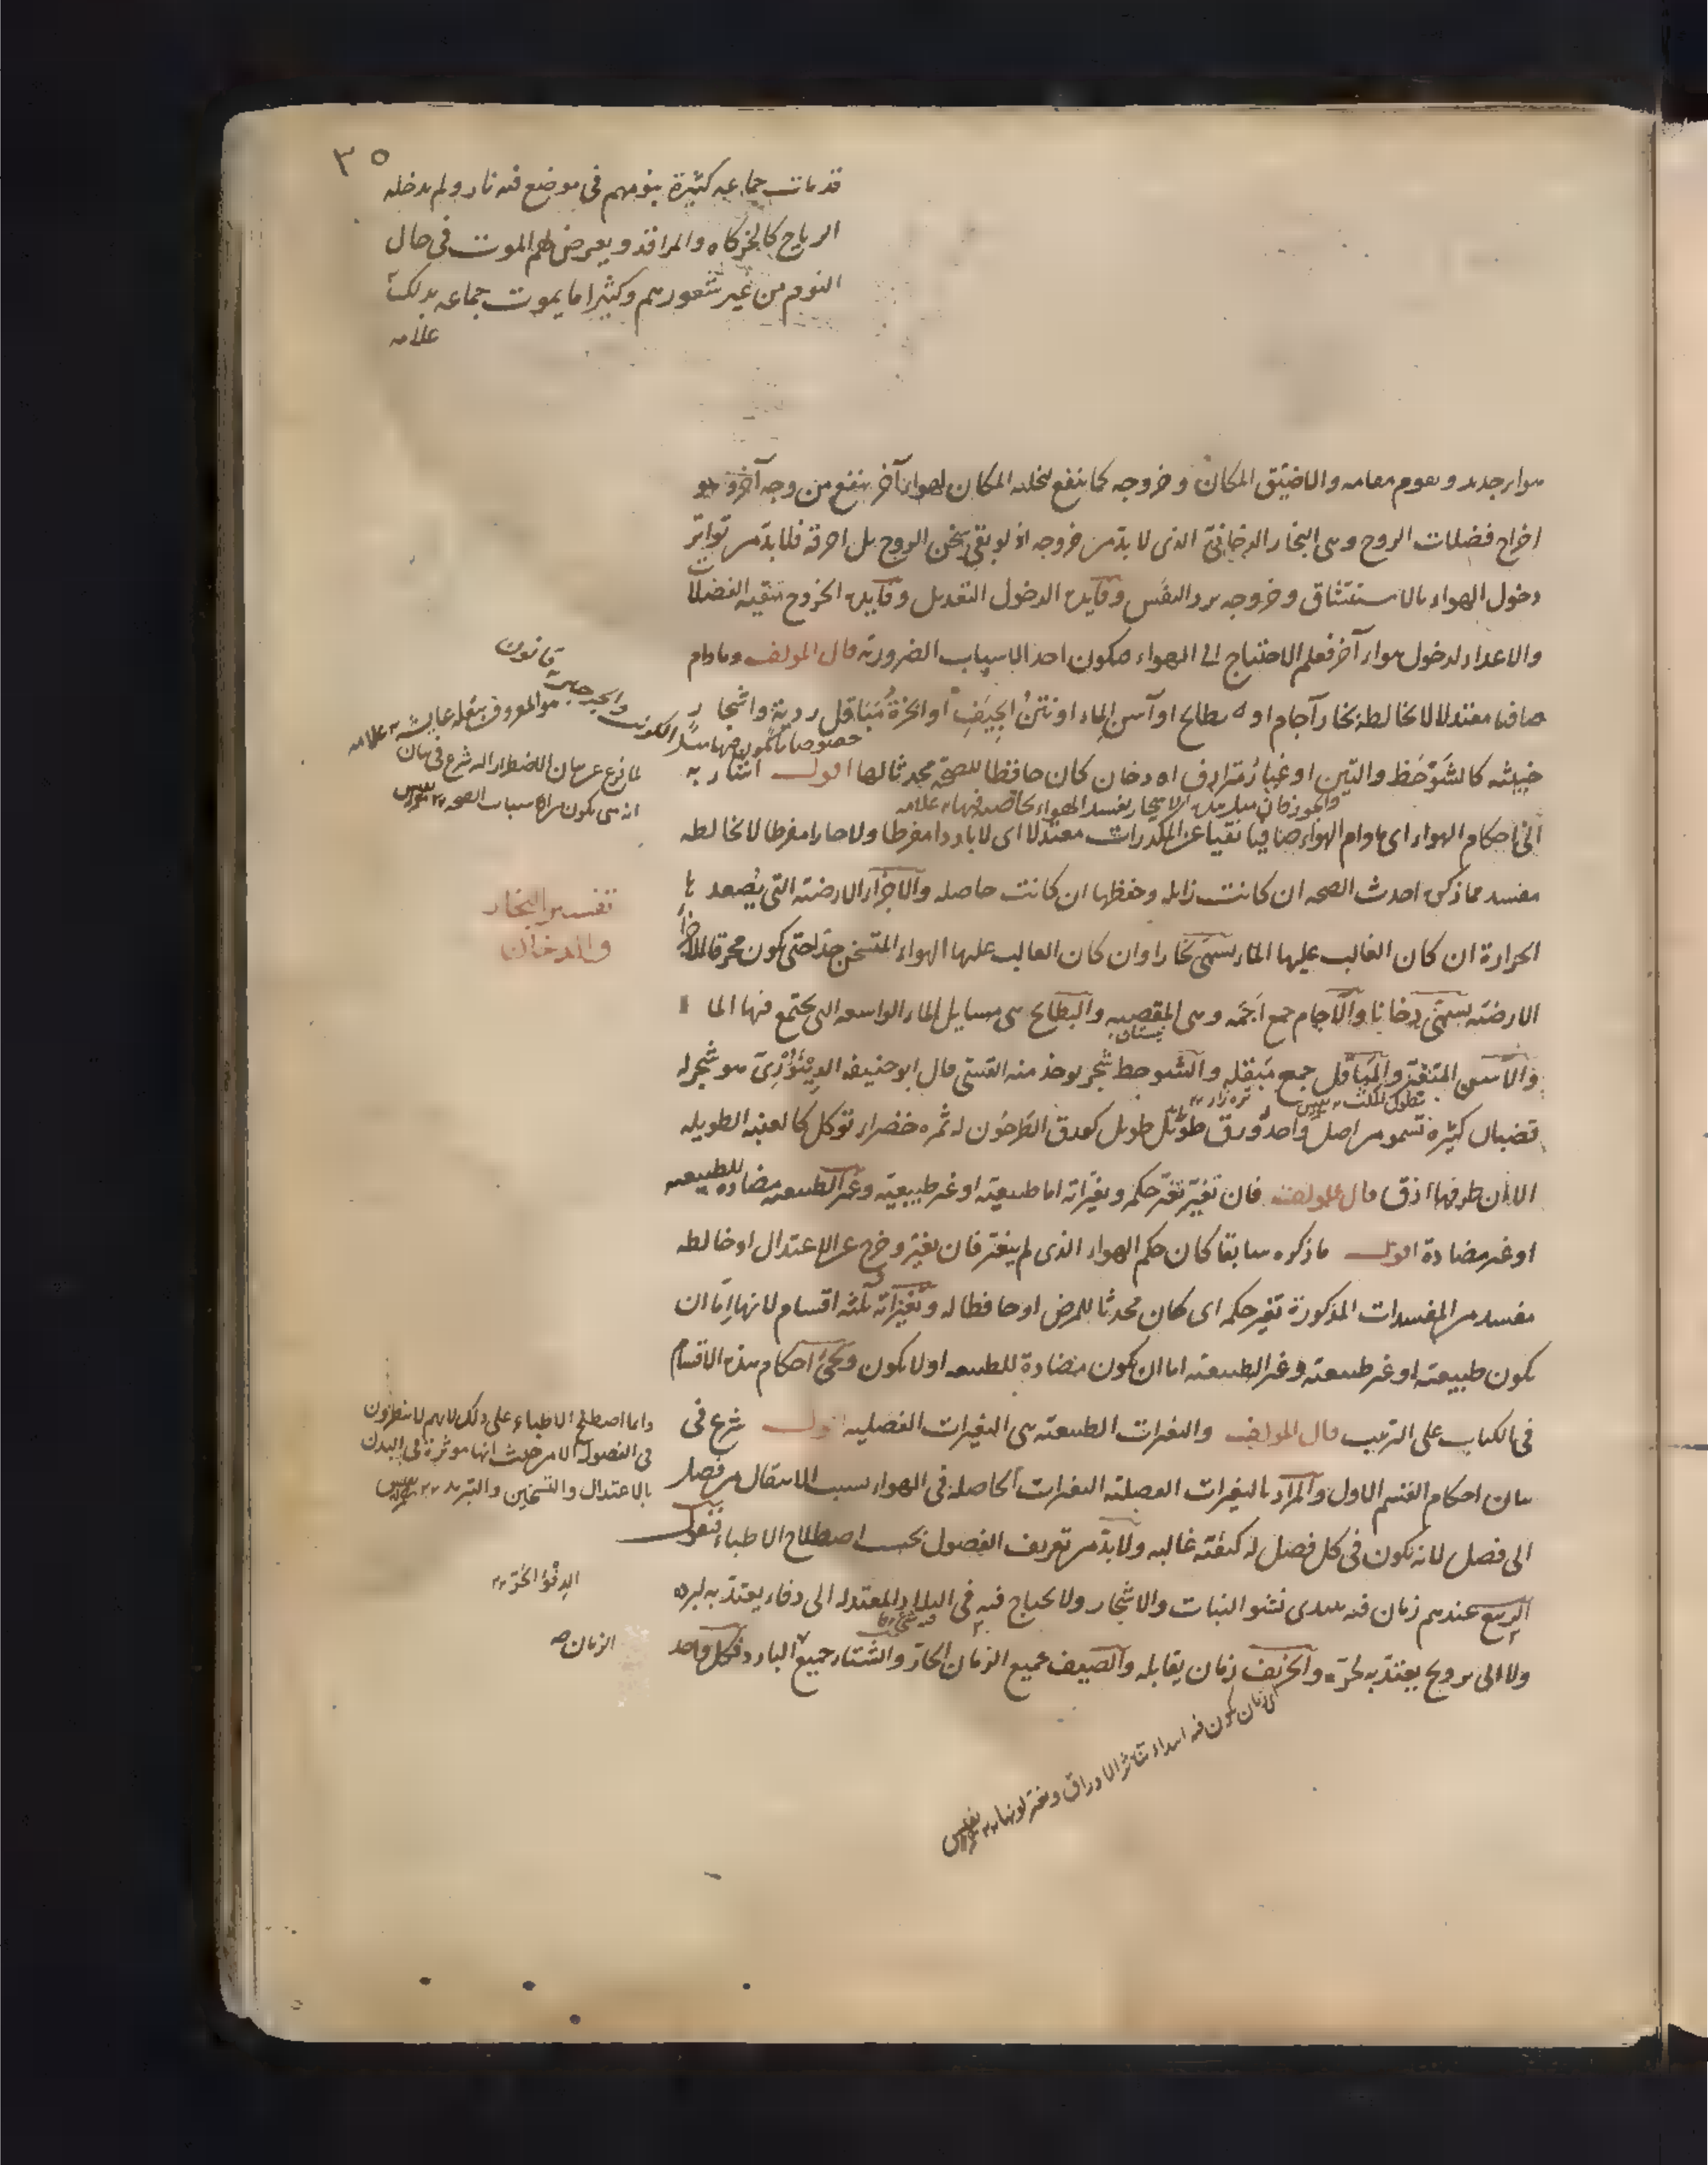 ٣٥
قد مات جماعه كثيرة بنومهم فى موضع فيه نار ولم يدخله
الرياح كالخركاه والمراقد ويعرض لهم الموت فى حال
النوم من غير شعورهم وكثيرا ما يموت جماعه بذلك
علامه
هواء جديد ويقوم مقامه والا ضيق المكان وخروجه كما ينفع لتخليه المكان لهواء آخر ينفع من وجه آخر وهو
اخراج فضلات الروح وهى البخار الدخانى الذى لا بد من خروجه اذ لو بقى يخن الروح بل احرقه فلا بد من تواتر
دخول الهواء بالاستنشاق وخروجه برد النفس وفايدة الدخول التعديل وفايدة الخروج تنقيه الفضلات
والاعداد لدخول هواء آخر فعلم الاحتياج الى الهواء فيكون احد الاسباب الضروريه قال المولف وما دام
صافيا معتدلا لا يخالطه بخار آجام او بطائح او آسن الماء او نتن الجيف او ابخرة مباقل ردية واشجار
خبيثه كالشوحظ والتين او غبار مترادف او دخان كان حافظا للصحة محدثا لها اقول اشار به
الى احكام الهواء اى ما دام الهواء صافيا نقيا عن المكدرات معتدلا اى لا باردا مفرطا ولا حارا مفرطا لا يخالطه
مفسد مما ذكر احدث الصحه ان كانت زايله وحفظها ان كانت حاصله والاجزاء الارضية التى يصعد بها
الحرارة ان كان الغالب عليها الماء يسمى بخارا وان كان الغالب عليها الهواء المتسخن جدا حتى يكون محرقا للاجزاء
الارضيه يسمى دخانا والآجام جمع اجمه وهى المقصبه والبطائح هى مسايل الماء الواسعه التى يجتمع فيها الماء
والاسن المتغير والمباقل جمع مبقله والشوحط شجر يوخذ منه القسى قال ابو حنيفه الدينورى هو شجر له
قضبان كثيره تسمو من اصل واحد وورق طويل كورق الطرخون له ثمره خضراء توكل كالعنبه الطويله
الا ان طرفها ادق قال المولف فان تغير تغير حكمه وتغيراته اما طبيعيه او غير طبيعيه وغير الطبيعيه مضاده للطبيعه
او غير مضادة اقول ما ذكره سابقا كان حكم الهواء الذى لم يتغير فان تغير وخرج عن الاعتدال او خالطه
مفسد من المفسدات المذكورة تغير حكمه اى كان محدثا للمرض او حافظا له وتغيراته ثلثه اقسام لانها اما ان
يكون طبيعيه او غير طبيعيه وغير الطبيعيه اما ان يكون مضادة للطبيعه او لا يكون ويجئ احكام هذه الاقسام
فى الكتاب على الترتيب قال المولف والتغيرات الطبيعيه هى التغيرات الفصليه اقول شرع فى
بيان احكام القسم الاول والمراد بالتغيرات الفصليه التغيرات الحاصله فى الهواء بسبب الانتقال من فصل
الى فصل لانه يكون فى كل فصل له كيفيته غالبه ولا بد من تعريف الفصول بحسب اصطلاح الاطباء فنقول
الربيع عندهم زمان فيه يبتدى نشو النبات والاشجار ولا يحتاج فيه فى البلاد المعتدله الى دفاء يعتد به لبرده
ولا الى ترويح يعتد به لحره والخريف زمان يقابله والصيف جميع الزمان الحار والشتاء جميع البارد فكل واحد
قانون
لما فرغ عن بيان الاضطرار اليه شرع فى بيان
انه متى يكون من اسباب الصحه
تفسير البخار
والدخان
بستان
واما اصطلح الاطباء على ذلك لانهم لا ينظرون
فى الفصول الا من حيث انها موثرة فى البدن
بالاعتدال والتسخين والتبريد
الدفؤ الحر
الزمان
اى زمان يكون فيه ابتداء تناثر الاوراق وتغير لونها